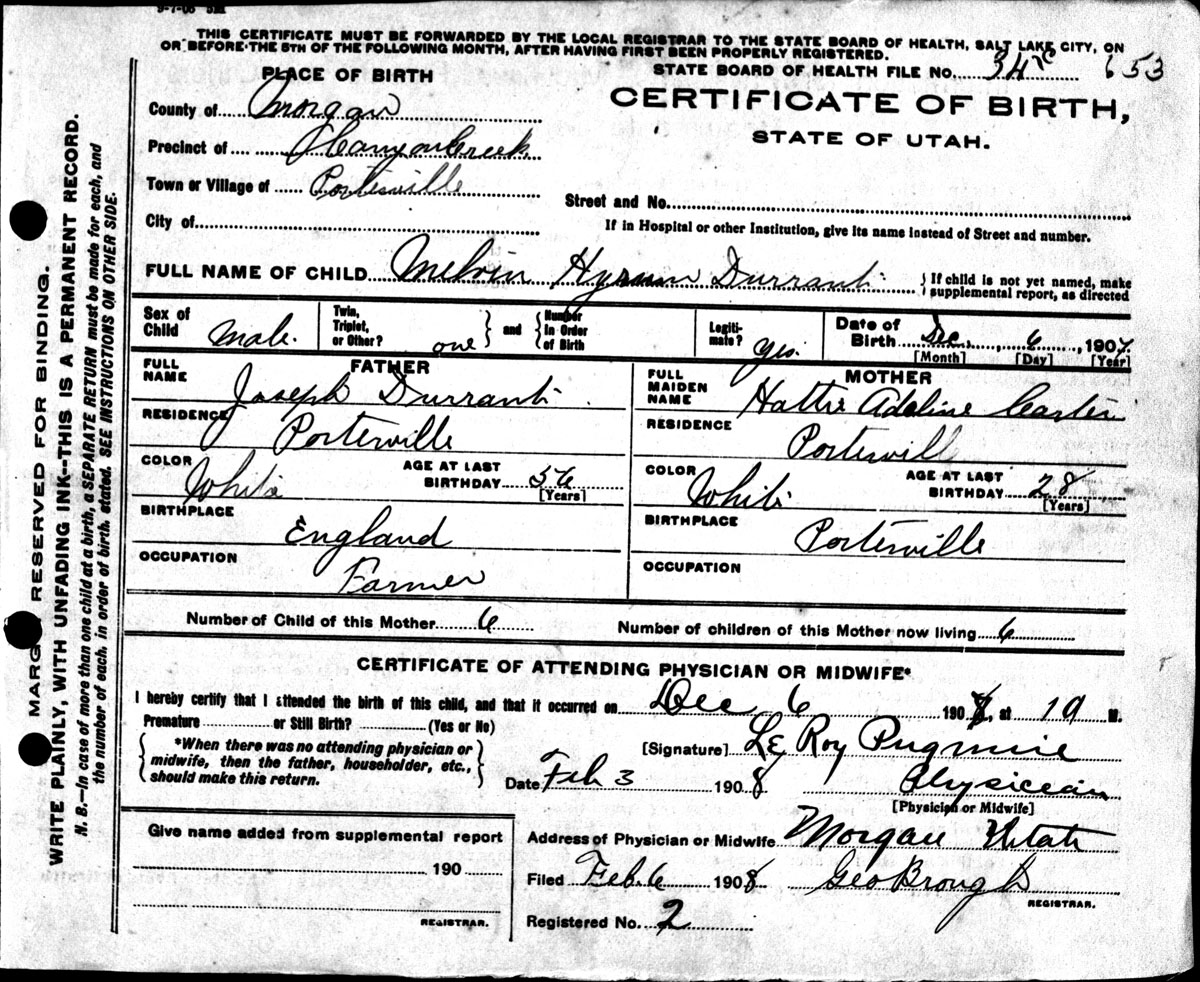 9-7-05 5M
THIS CERTIFICATE MUST BE FORWARDED BY THE LOCAL REGISTRAR TO THE STATE BOARD OF HEALTH, SALT LAKE CITY, ON
OR BEFORE THE 5TH OF THE FOLLOWING MONTH, AFTER HAVING FIRST BEEN PROPERLY REGISTERED.
PLACE OF BIRTH
STATE BOARD OF HEALTH FILE NO. 653
County of Morgan
CERTIFICATE OF BIRTH,
STATE OF UTAH.
Precinct of Canyon Creek
Town or Village of Porterville
Street and No.
City of
If in Hospital or other Institution, give its name instead of Street and number.
FULL NAME OF CHILD Melvin Hyrum Durrant
{ If child is not yet named, make
supplemental report, as directed
Sex of Child Male.
Twin, Triplet, or Other? one
and
Number In Order of Birth
Legitimate? Yes.
Date of Birth Dec., 6, 1907.
[Month] [Day] [Year]
FATHER
FULL NAME Joseph Durrant.
RESIDENCE Porterville
COLOR White
AGE AT LAST BIRTHDAY 56
[Years]
BIRTHPLACE England
OCCUPATION Farmer
MOTHER
FULL MAIDEN NAME Hattie Adeline Carter
RESIDENCE Porterville
COLOR White
AGE AT LAST BIRTHDAY 28
[Years]
BIRTHPLACE Porterville
OCCUPATION
Number of Child of this Mother 6
Number of children of this Mother now living 6
CERTIFICATE OF ATTENDING PHYSICIAN OR MIDWIFE*
I hereby certify that I attended the birth of this child, and that it occurred on Dec 6 190 , at 10 M.
Premature or Still Birth? (Yes or No)
{ *When there was no attending physician or
midwife, then the father, householder, etc.,
should make this return. }
[Signature] Le Roy Pugmire
Date Feb 3 1908 Physician
[Physician or Midwife]
Give name added from supplemental report
190
REGISTRAR.
Address of Physician or Midwife Morgan Utah
Filed Feb. 6 1908 Geo Brough
REGISTRAR.
Registered No. 2
MARGIN RESERVED FOR BINDING.
WRITE PLAINLY, WITH UNFADING INK--THIS IS A PERMANENT RECORD.
N. B.—In case of more than one child at a birth, a SEPARATE RETURN must be made for each, and
the number of each, in order of birth, stated. SEE INSTRUCTIONS ON OTHER SIDE.